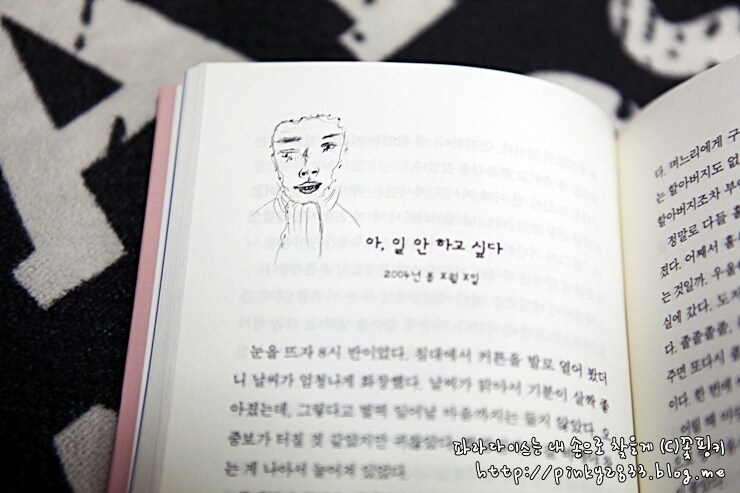 아, 일 안 하고 싶다
2004년 봄 X월 X일
눈을 뜨자 8시 반이었다. 침대에서 커튼을 발로 열어 봤더
니 날씨가 엄청나게 화창했다. 날씨가 맑아서 기분이 살짝 좋
아졌는데, 그렇다고 벌떡 일어날 마음까지는 들지 않았다. 오
줌보가 터질 것 같았지만 괜찮았다.
는 게 나아서 눌어져 있었다.
다. 며느리에게 구
는 할아버지도 없
할아버지조차 부
정말로 다들 훌
졌다. 어째서 훌
는 것일까. 우울
실에 갔다. 도저
다. 졸졸졸졸, 졸
주면 또다시 졸
이다. 한 번에
어릴 때 비
파라다이스는 내 손으로 찾을게 (C)꽃핑키
http://pinky2833.blog.me